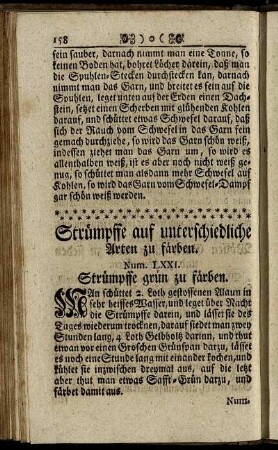 158 )o(
sein sauber, darnach nimmt man eine Tonne, so
keinen Boden hat, bohret löcher darein, daß man
die Spuhlen-Stecken durchstecken kan, darnach
nimmt man das Garn, und breitet es fein auf die
Spuhlen, leget unten auf der Erden einen Dach-
stein, setzet einen Scherben mit glühenden Kohlen
darauf, und schüttet etwas Schwefel darauf, daß
sich der Rauch vom Schwefel in das Garn fein
gemach durchziehe, so wird das Garn schön weiß,
indessen ziehet man das Garn um, so wird es
allenthalben weiß, ist es aber noch nicht weiß ge-
nug, so schüttet man alsdann mehr Schwefel auf
Kohlen, so wird das Garn vom Schwefel-Dampf
gar schön weiß werden.
Strümpffe auf unterschiedliche
Arten zu färben.
Num. LXXI.
Strümpffe grün zu färben.
MAn schüttet 2. Loth gestossenen Alaun in
sehr heisses Wasser, und leget über Nacht
die Strümpffe darein, und lässet sie des
Tages wiederum trocknen, darauf siedet man zwey
Stunden lang, 4 Loth Gelbholtz darinn, und thut
etwan vor einen Groschen Grünspan darzu, lässet
es noch eine Stunde lang mit einander kochen, und
kühlet sie inzwischen dreymal aus, auf die letzt
aber thut man etwas Safft-Grün darzu, und
färbet damit aus.
Num-